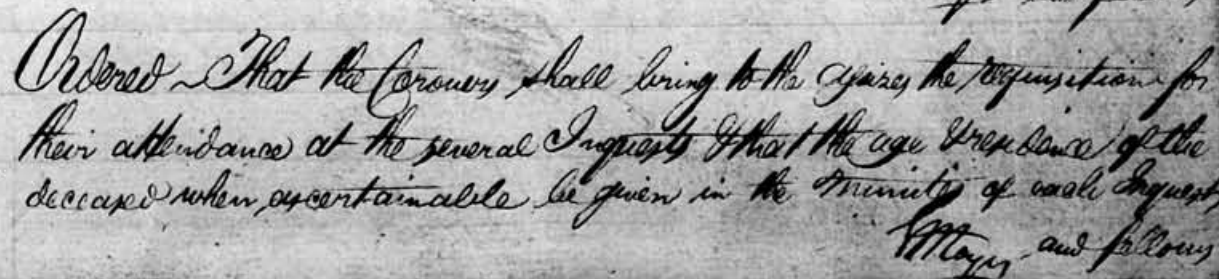 Ordered ~ That the Coroners shall bring to the assizes the requisition for
their attendance at the several Inquests & that the age & residence of the
deceased when ascertainable be given in the minutes of each Inquest
Mayn and fellows